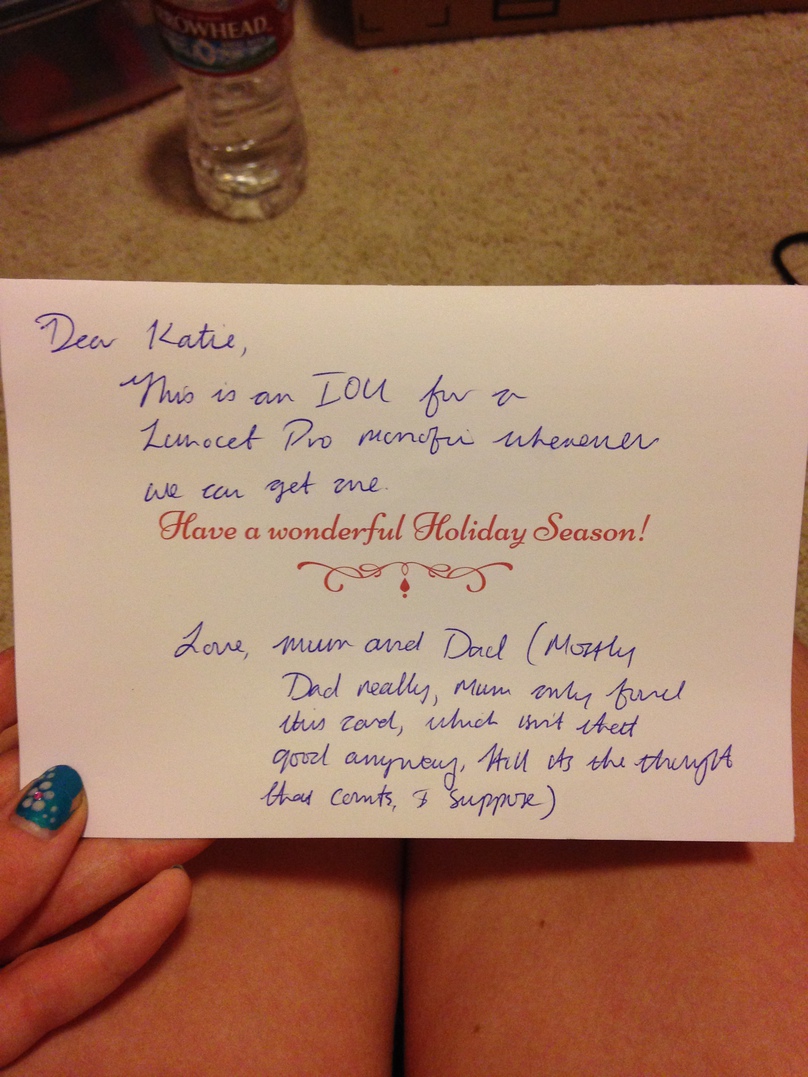 ARROWHEAD.
Dear Katie,
This is an IOU for a
Lunocet Pro monofin whenever
we can get one.
Have a wonderful Holiday Season!
Love, Mum and Dad (Mostly
Dad really, Mum only found
this card, which isn't that
good anyway, still its the thought
that counts, I suppose)